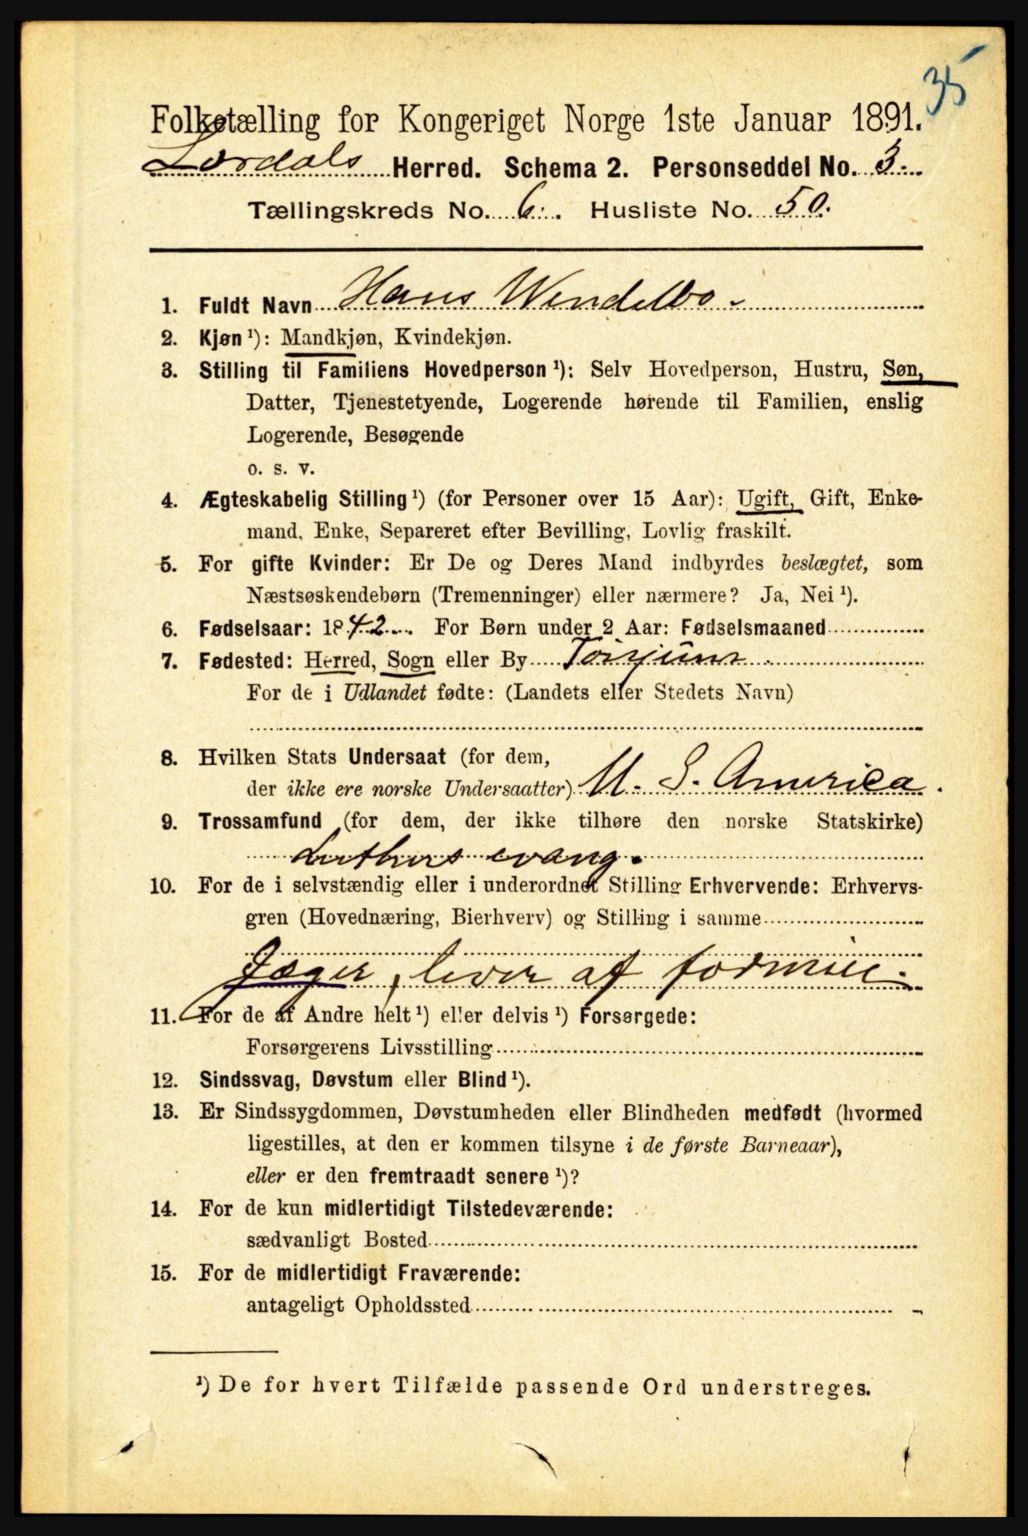 35
Folketælling for Kongeriget Norge 1ste Januar 1891.
Lærdals Herred. Schema 2. Personseddel No. 3.
Tællingskreds No. 6. Husliste No. 50.
1. Fuldt Navn Hans Wendelbo.
2. Kjøn ¹): Mandkjøn, Kvindekjøn.
3. Stilling til Familiens Hovedperson ¹): Selv Hovedperson, Hustru, Søn,
Datter, Tjenestetyende, Logerende hørende til Familien, enslig
Logerende, Besøgende
o. s. v.
4. Ægteskabelig Stilling ¹) (for Personer over 15 Aar): Ugift, Gift, Enke-
mand, Enke, Separeret efter Bevilling, Lovlig fraskilt.
5. For gifte Kvinder: Er De og Deres Mand indbyrdes beslægtet, som
Næstsøskendebørn (Tremenninger) eller nærmere? Ja, Nei ¹).
6. Fødselsaar: 1842. For Børn under 2 Aar: Fødselsmaaned
7. Fødested: Herred, Sogn eller By Tønjum.
For de i Udlandet fødte: (Landets eller Stedets Navn)
8. Hvilken Stats Undersaat (for dem,
der ikke ere norske Undersaatter) U. S. America.
9. Trossamfund (for dem, der ikke tilhøre den norske Statskirke)
Luthers evang.
10. For de i selvstændig eller i underordnet Stilling Erhvervende: Erhvervs-
gren (Hovednæring, Bierhverv) og Stilling i samme
Jæger, lever af formue.
11. For de af Andre helt ¹) eller delvis ¹) Forsørgede:
Forsørgerens Livsstilling
12. Sindssvag, Døvstum eller Blind ¹).
13. Er Sindssygdommen, Døvstumheden eller Blindheden medfødt (hvormed
ligestilles, at den er kommen tilsyne i de første Barneaar),
eller er den fremtraadt senere ¹)?
14. For de kun midlertidigt Tilstedeværende:
sædvanligt Bosted
15. For de midlertidigt Fraværende:
antageligt Opholdssted
¹) De for hvert Tilfælde passende Ord understreges.